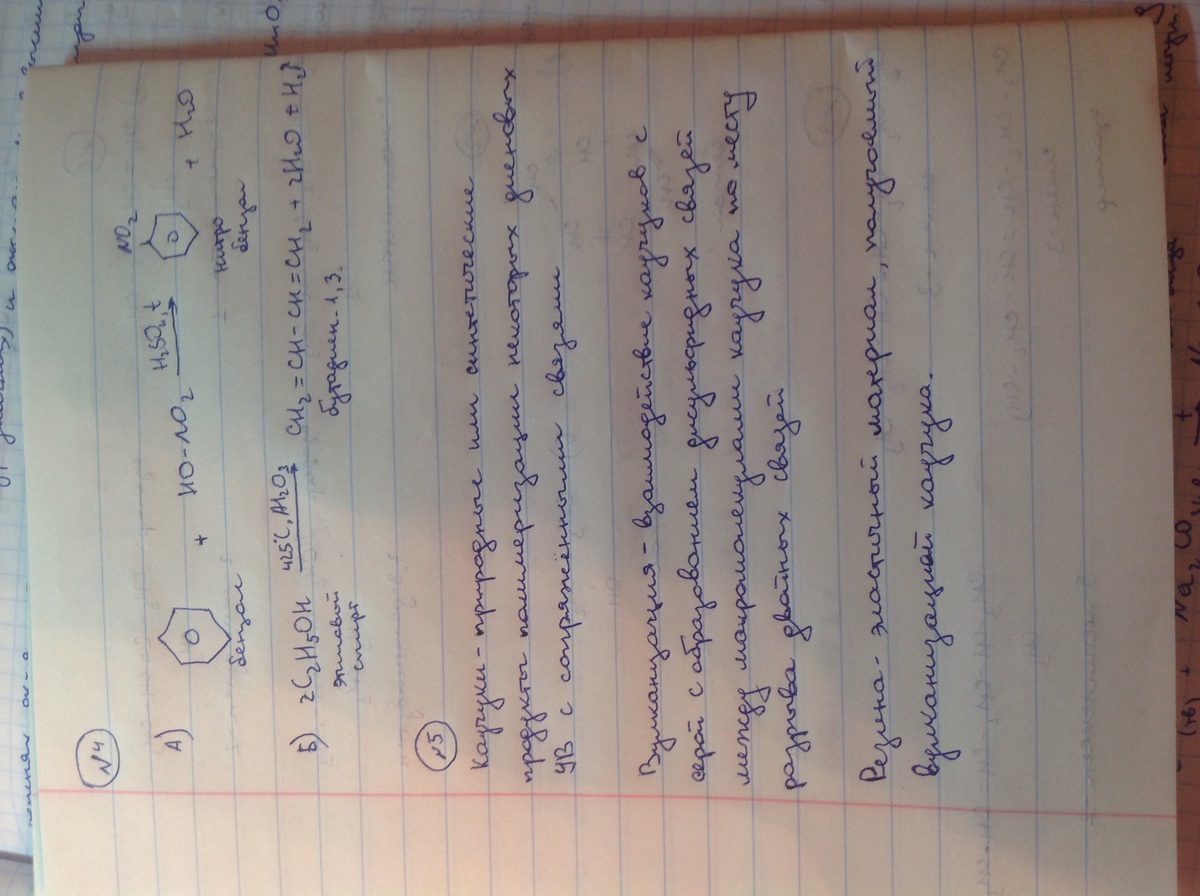 №4
А)
+ HO-NO2 H2SO4, t NO2 + H2O
бензол
нитро
бензол
Б) 2C2H5OH 425°C, Al2O3 CH2=CH-CH=CH2 + 2H2O + H2↑
этиловый
спирт
бутадиен-1,3.
№5
Каучуки - природные или синтетические
продукты полимеризации некоторых диеновых
УВ с сопряжёнными связями
Вулканизация - взаимодействие каучуков с
серой с образованием дисульфидных связей
между макромолекулами каучука по месту
разрыва двойных связей
Резина - эластичный материал, получаемый
вулканизацией каучука.